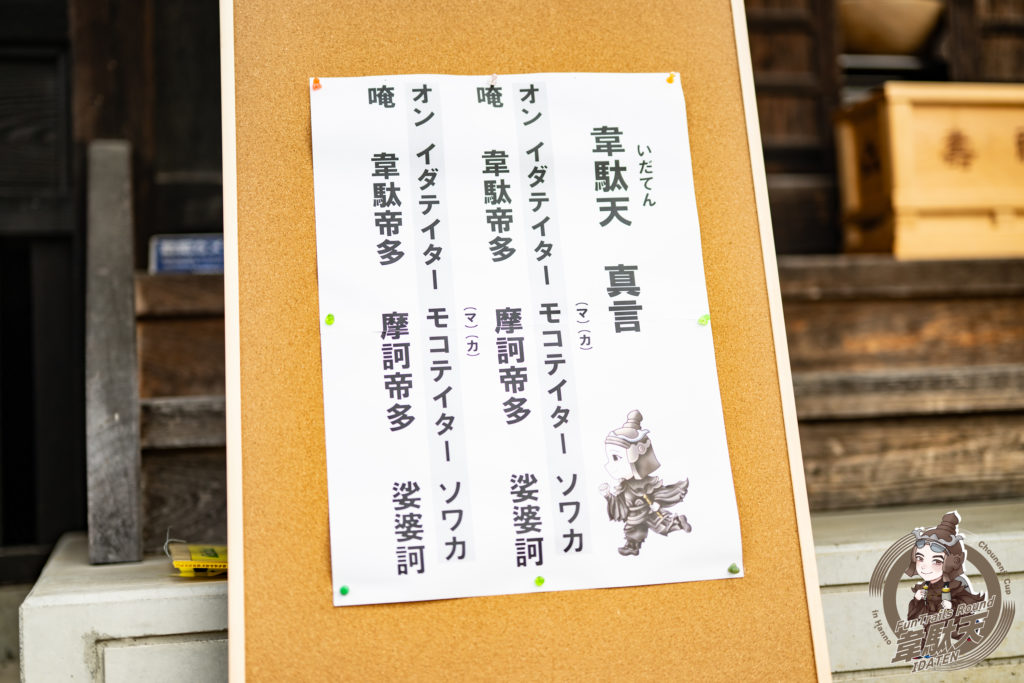 いだてん
韋駄天 真言
(マ)(カ)
オン イダテイター モコテイター ソワカ
唵 韋駄帝多 摩訶帝多 娑婆訶
(マ)(カ)
オン イダテイター モコテイター ソワカ
唵 韋駄帝多 摩訶帝多 娑婆訶
寿
Chounen Cup
in Hanno
FunTrails Round
韋駄天
IDATEN